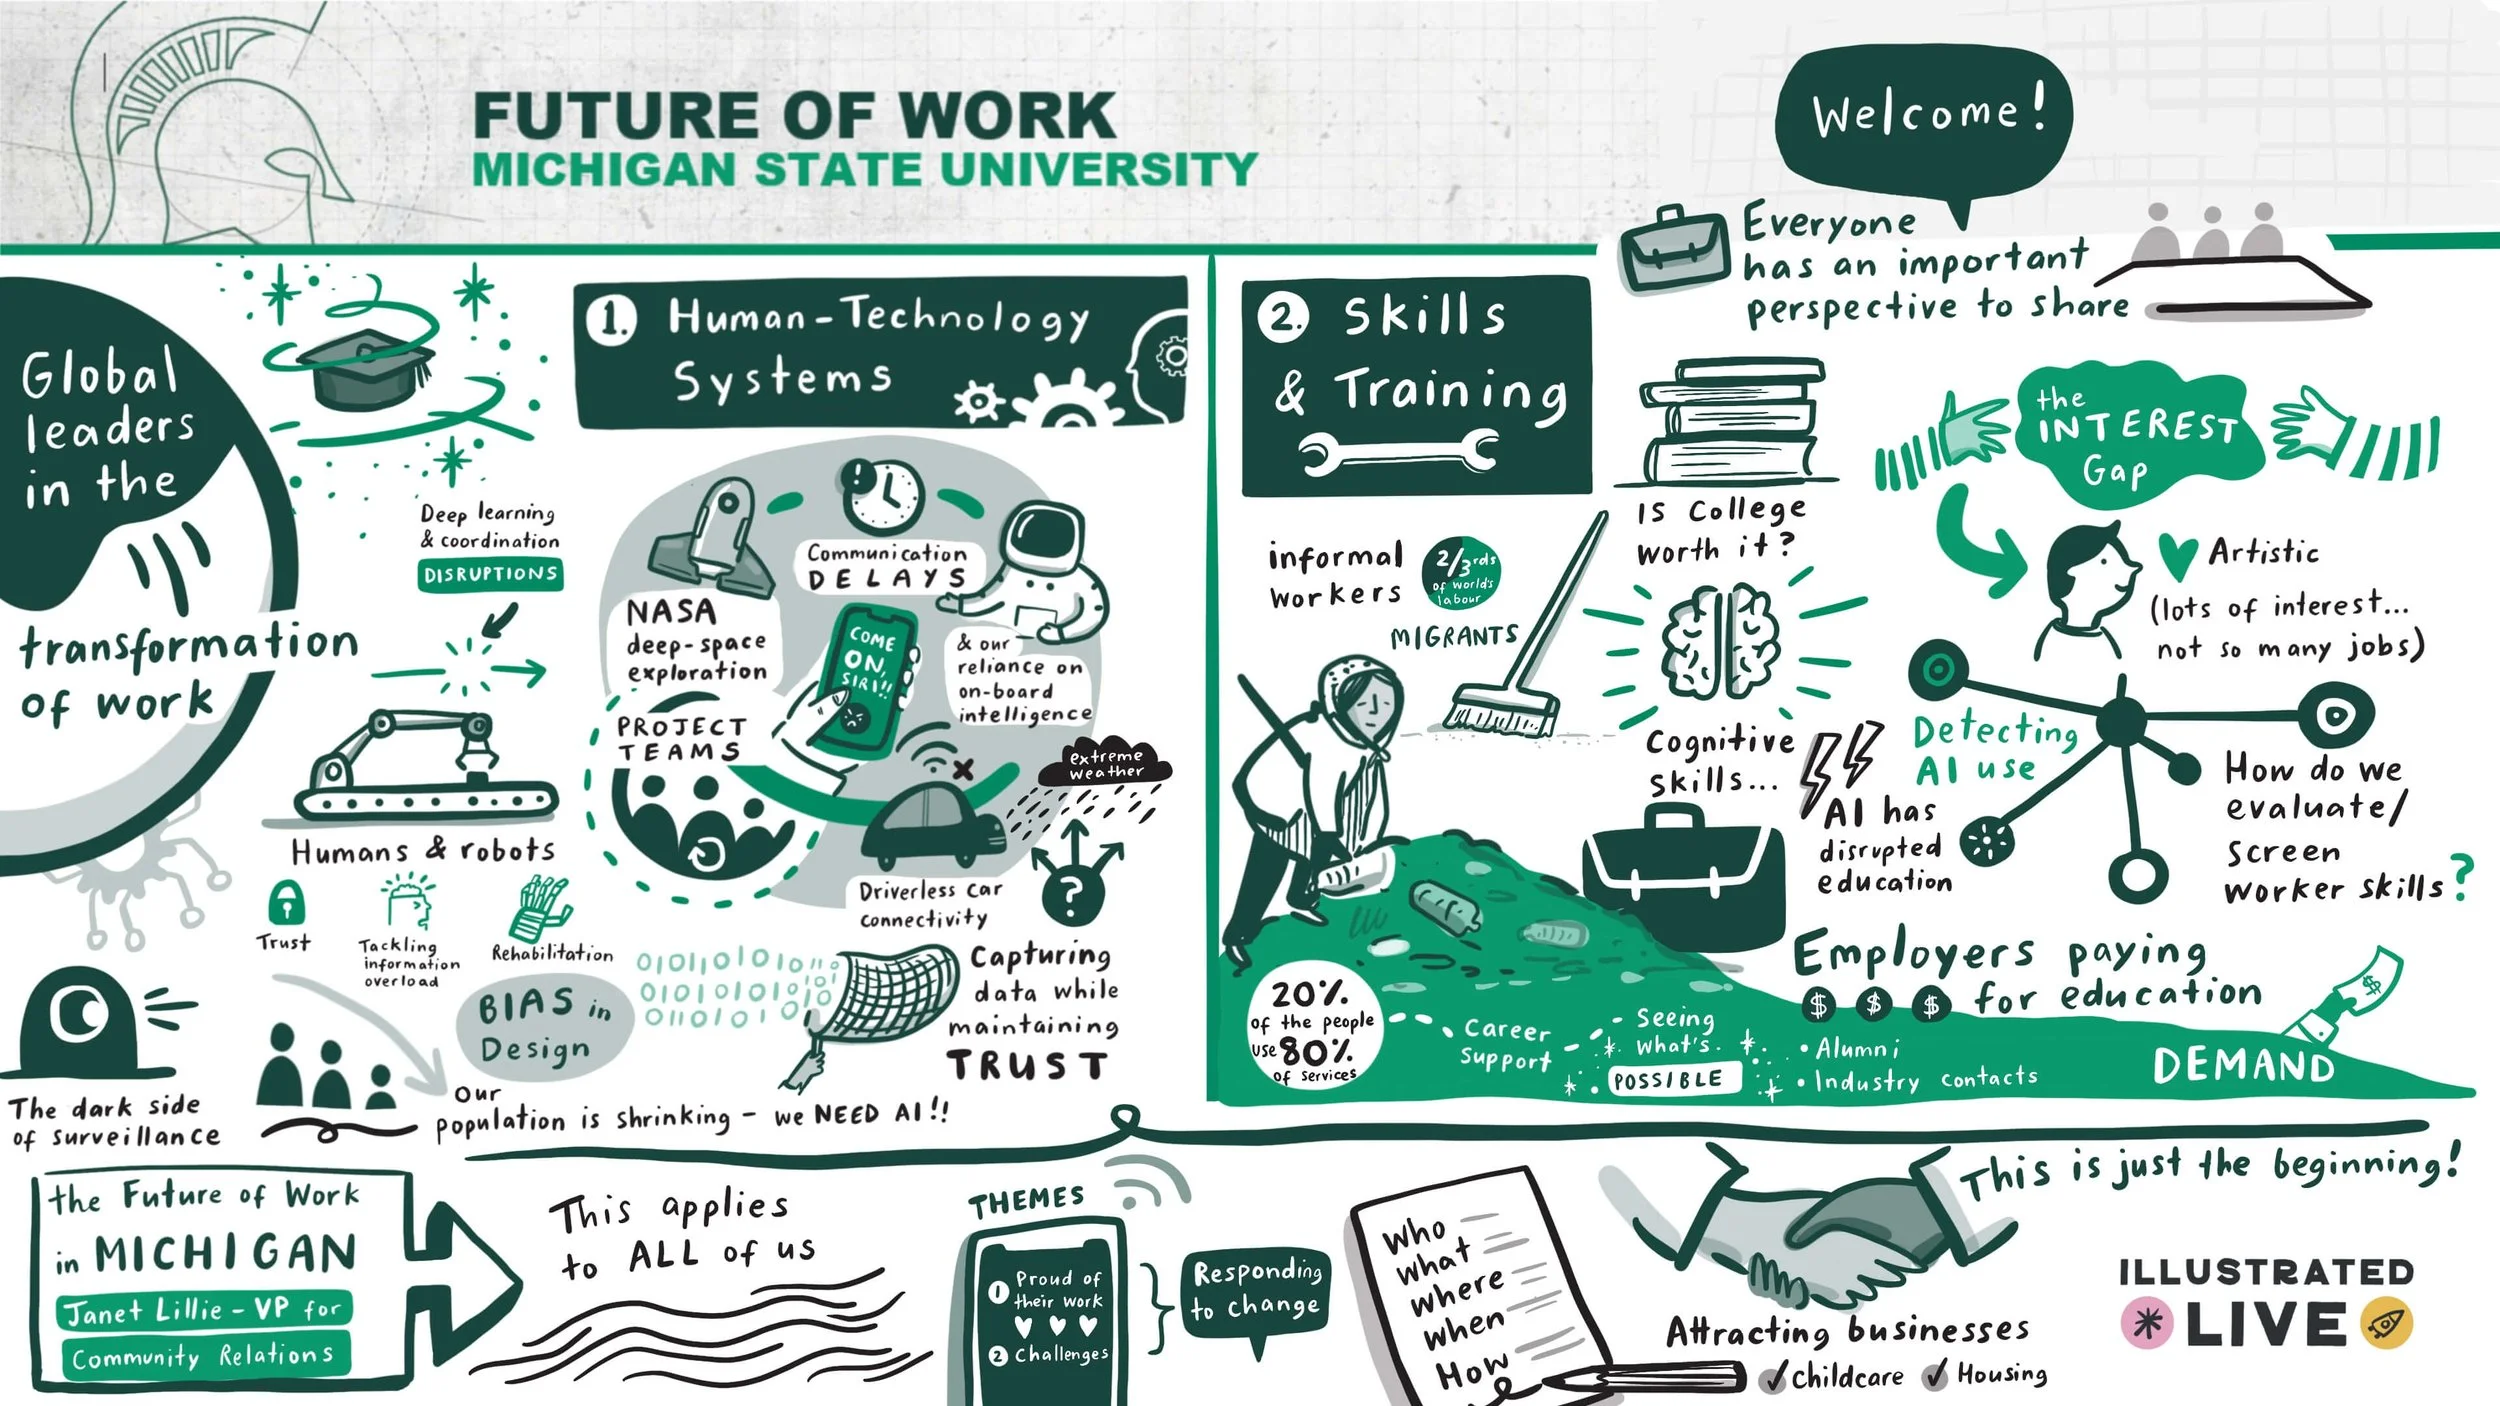 FUTURE OF WORK
MICHIGAN STATE UNIVERSITY
Welcome!
Everyone
has an important
perspective to share
Global
leaders
in the
transformation
of work
Deep learning
& coordination
DISRUPTIONS
Humans & robots
Trust
Tackling
information
overload
Rehabilitation
The dark side
of surveillance
BIAS in
Design
Our
population is shrinking - we NEED AI!!
1. Human-Technology
Systems
NASA
deep-space
exploration
Communication
DELAYS
& our
reliance on
on-board
intelligence
COME
ON,
SIRI!!
PROJECT
TEAMS
extreme
weather
Driverless car
connectivity
?
01011010101011
Capturing
data while
maintaining
TRUST
2. Skills
& Training
informal
workers
2/3rds
of world's
labour
MIGRANTS
20%
of the people
use 80%
of services
Career
Support
Seeing
what's
POSSIBLE
• Alumni
• Industry contacts
DEMAND
IS College
worth it?
Cognitive
skills...
AI has
disrupted
education
Employers paying
$ $ $ for education
$
the
INTEREST
Gap
Artistic
(lots of interest...
not so many jobs)
Detecting
AI use
How do we
evaluate/
screen
worker skills?
the Future of Work
in MICHIGAN
Janet Lillie - VP for
Community Relations
This applies
to ALL of us
THEMES
1 Proud of
their work
2 Challenges
Responding
to change
Who
what
where
when
How
This is just the beginning!
Attracting businesses
✓ Childcare ✓ Housing
ILLUSTRATED
LIVE